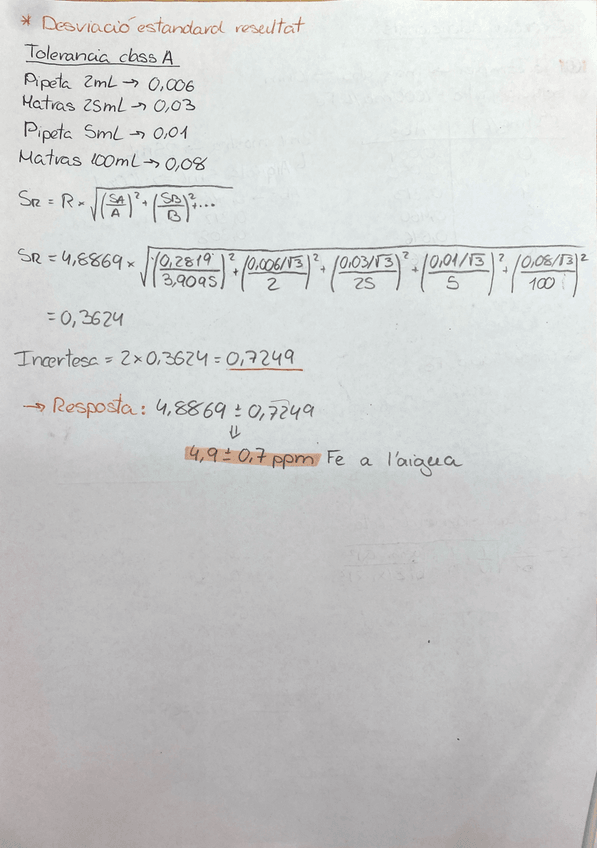 * Desviació estandard resultat
Tolerancia class A
Pipeta 2mL → 0,006
Matras 25mL → 0,03
Pipeta 5mL → 0,01
Matras 100mL → 0,08
SR = R × √((SA/A)² + (SB/B)² + ...
SR = 4,8869 × √((0,2819/3,9095)² + (0,006/√3/2)² + (0,03/√3/25)² + (0,01/√3/5)² + (0,08/√3/100)²
= 0,3624
Incertesa = 2 × 0,3624 = 0,7249
→ Resposta: 4,8869 ± 0,7249
⇓
4,9 ± 0,7 ppm Fe a l'aigua